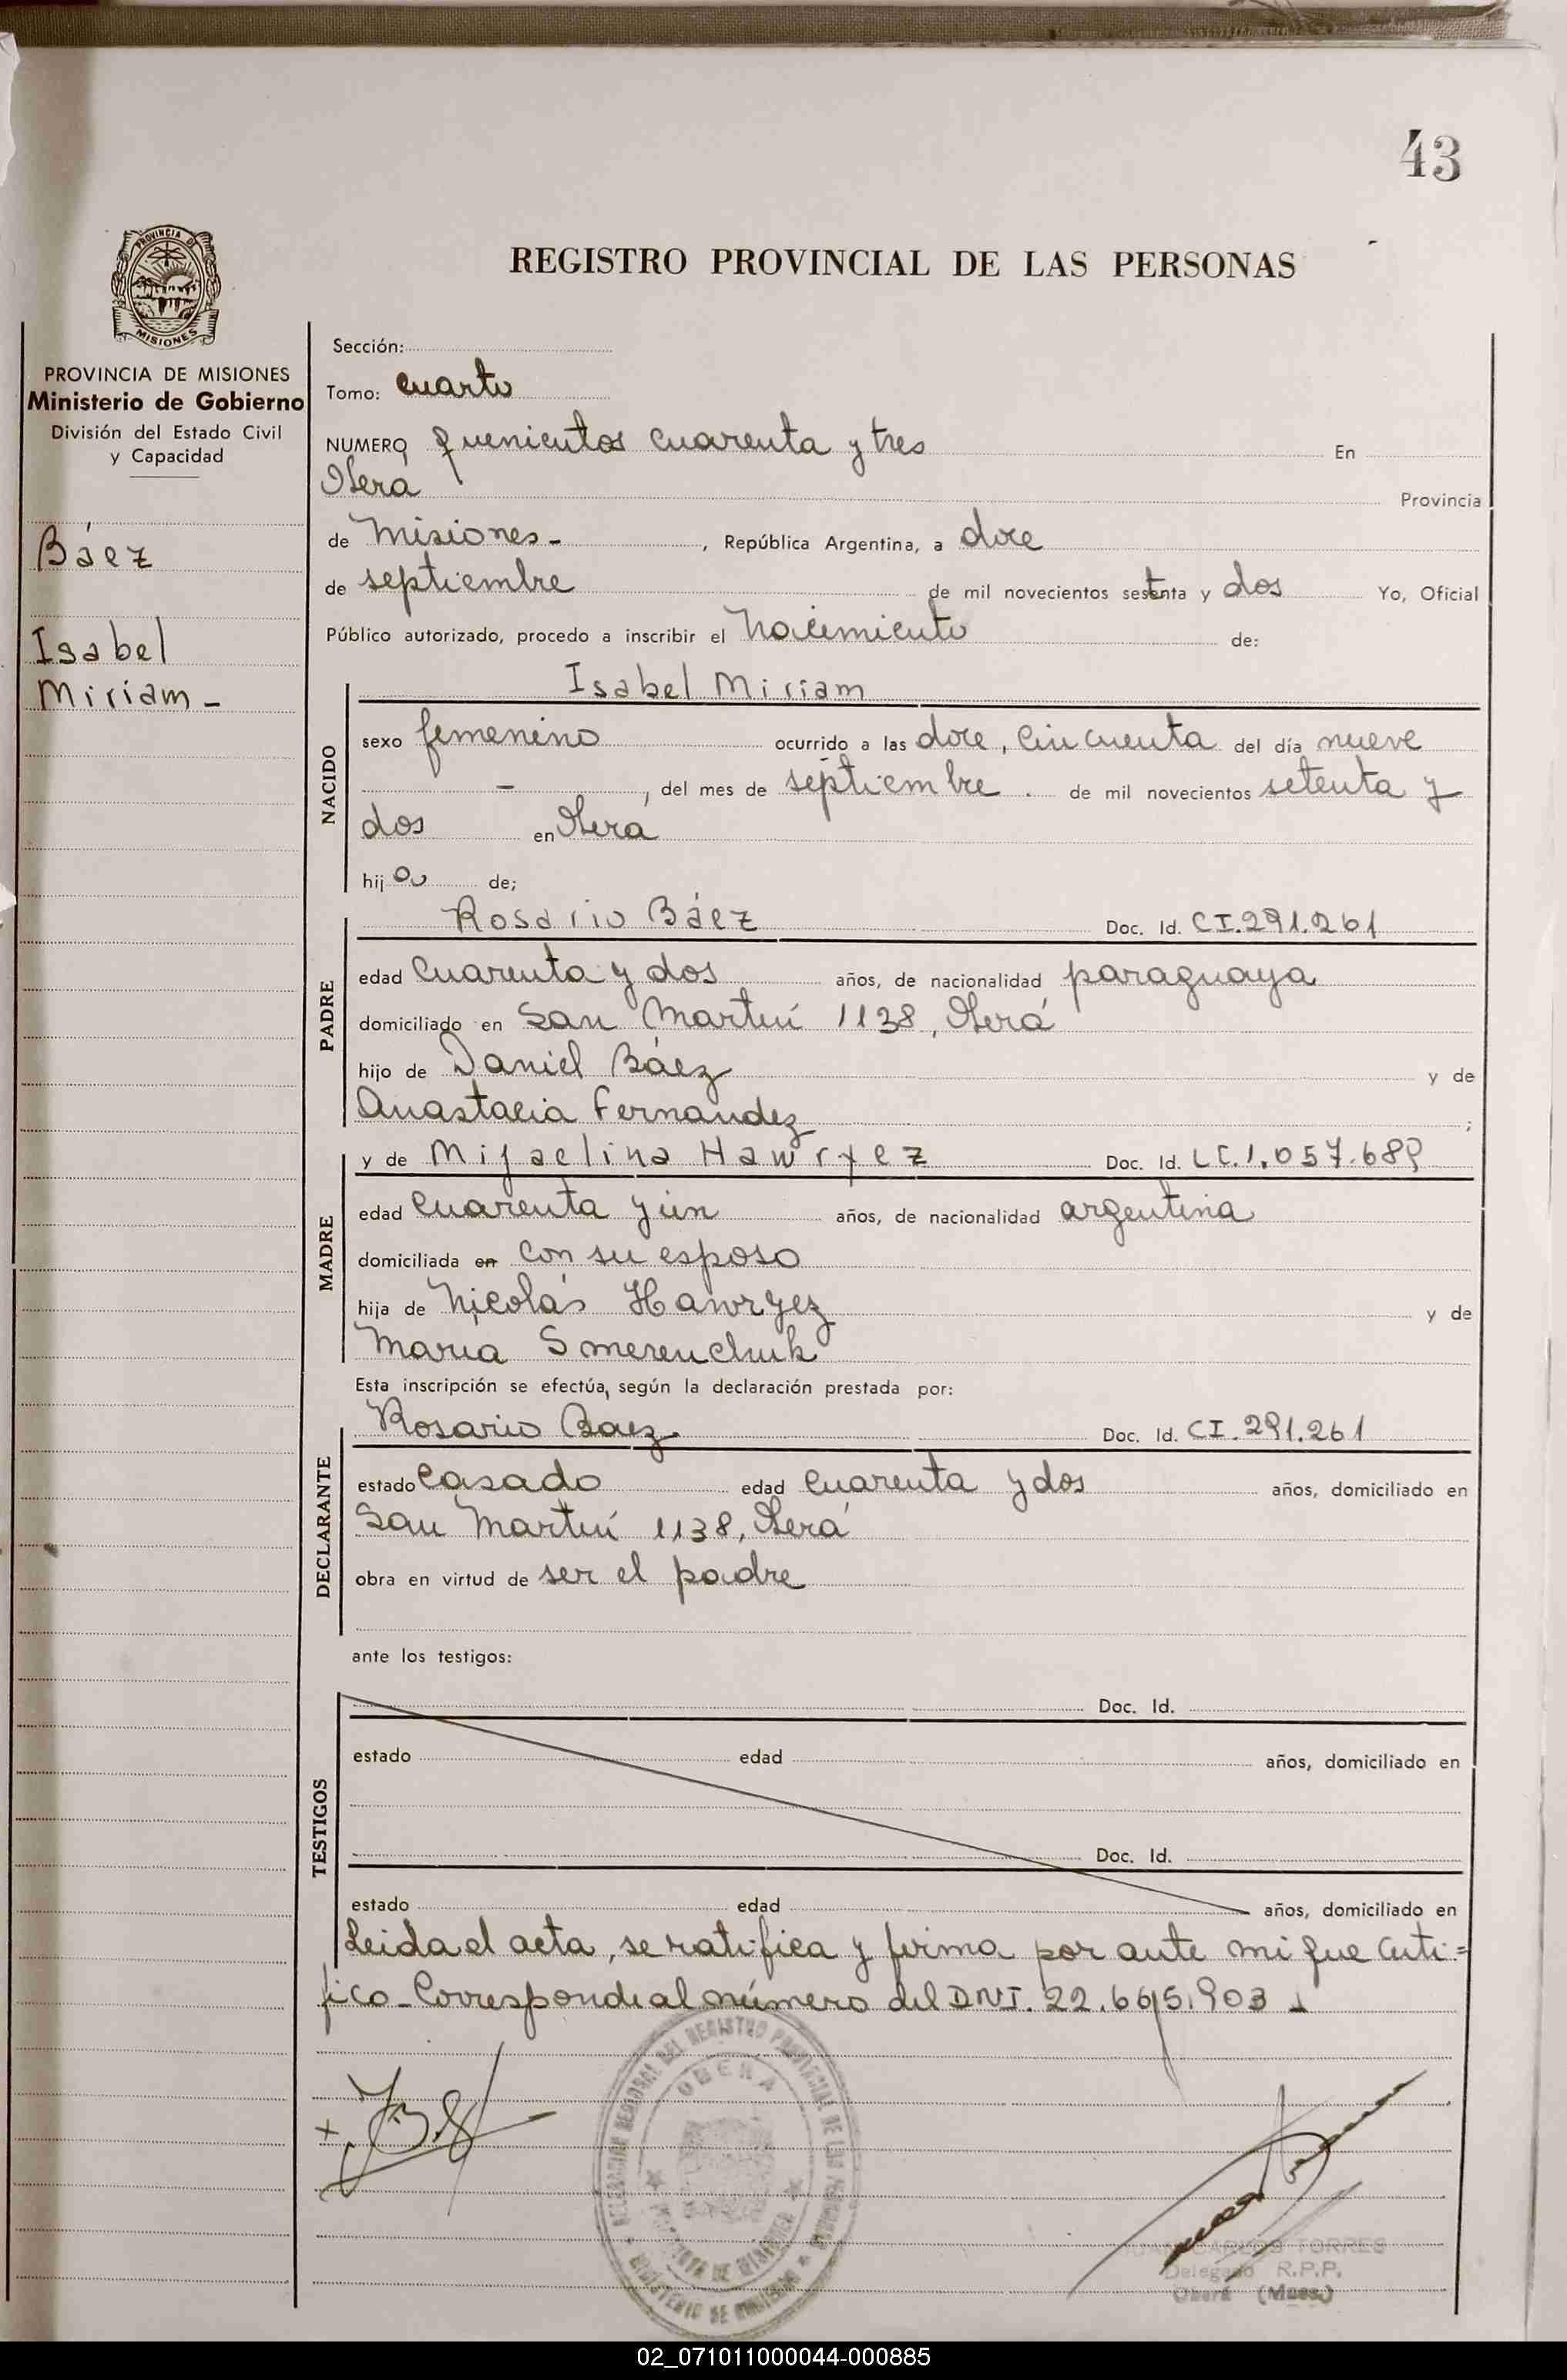 43
REGISTRO PROVINCIAL DE LAS PERSONAS
PROVINCIA DE
MISIONES
PROVINCIA DE MISIONES
Ministerio de Gobierno
División del Estado Civil
y Capacidad
Báez
Isabel
Miriam -
Sección:
Tomo: cuarto
NUMERO quinientos cuarenta y tres En
Oberá Provincia
de Misiones - , República Argentina, a doce
de septiembre de mil novecientos setenta y dos Yo, Oficial
Público autorizado, procedo a inscribir el Nacimiento de:
NACIDO
Isabel Miriam
sexo femenino ocurrido a las doce, cincuenta del día nueve
- , del mes de septiembre . de mil novecientos setenta y
dos en Oberá
hija de;
PADRE
Rosario Báez Doc. Id. CI.291.261
edad cuarenta y dos años, de nacionalidad paraguaya
domiciliado en San Martín 1138, Oberá
hijo de Daniel Báez y de
Anastacia Fernandez ;
MADRE
y de Mijaelina Hawryez Doc. Id. LC.1.057.689
edad cuarenta y un años, de nacionalidad argentina
domiciliada en con su esposo
hija de Nicolás Hawryez y de
Maria Smerenchuk
Esta inscripción se efectúa, según la declaración prestada por:
DECLARANTE
Rosario Baez Doc. Id. CI.291.261
estado casado edad cuarenta y dos años, domiciliado en
San Martín 1138, Oberá
obra en virtud de ser el padre
ante los testigos:
TESTIGOS
Doc. Id.
estado edad años, domiciliado en
Doc. Id.
estado edad años, domiciliado en
Leida el acta, se ratifica y firma por ante mi que certi=
fico - Corresponde al número del DNI. 22.665.903 -
OBERA
MINISTERIO DE
JUAN CARLOS TORRES
Delegado R.P.P.
Oberá (Mnes.)
02_071011000044-000885